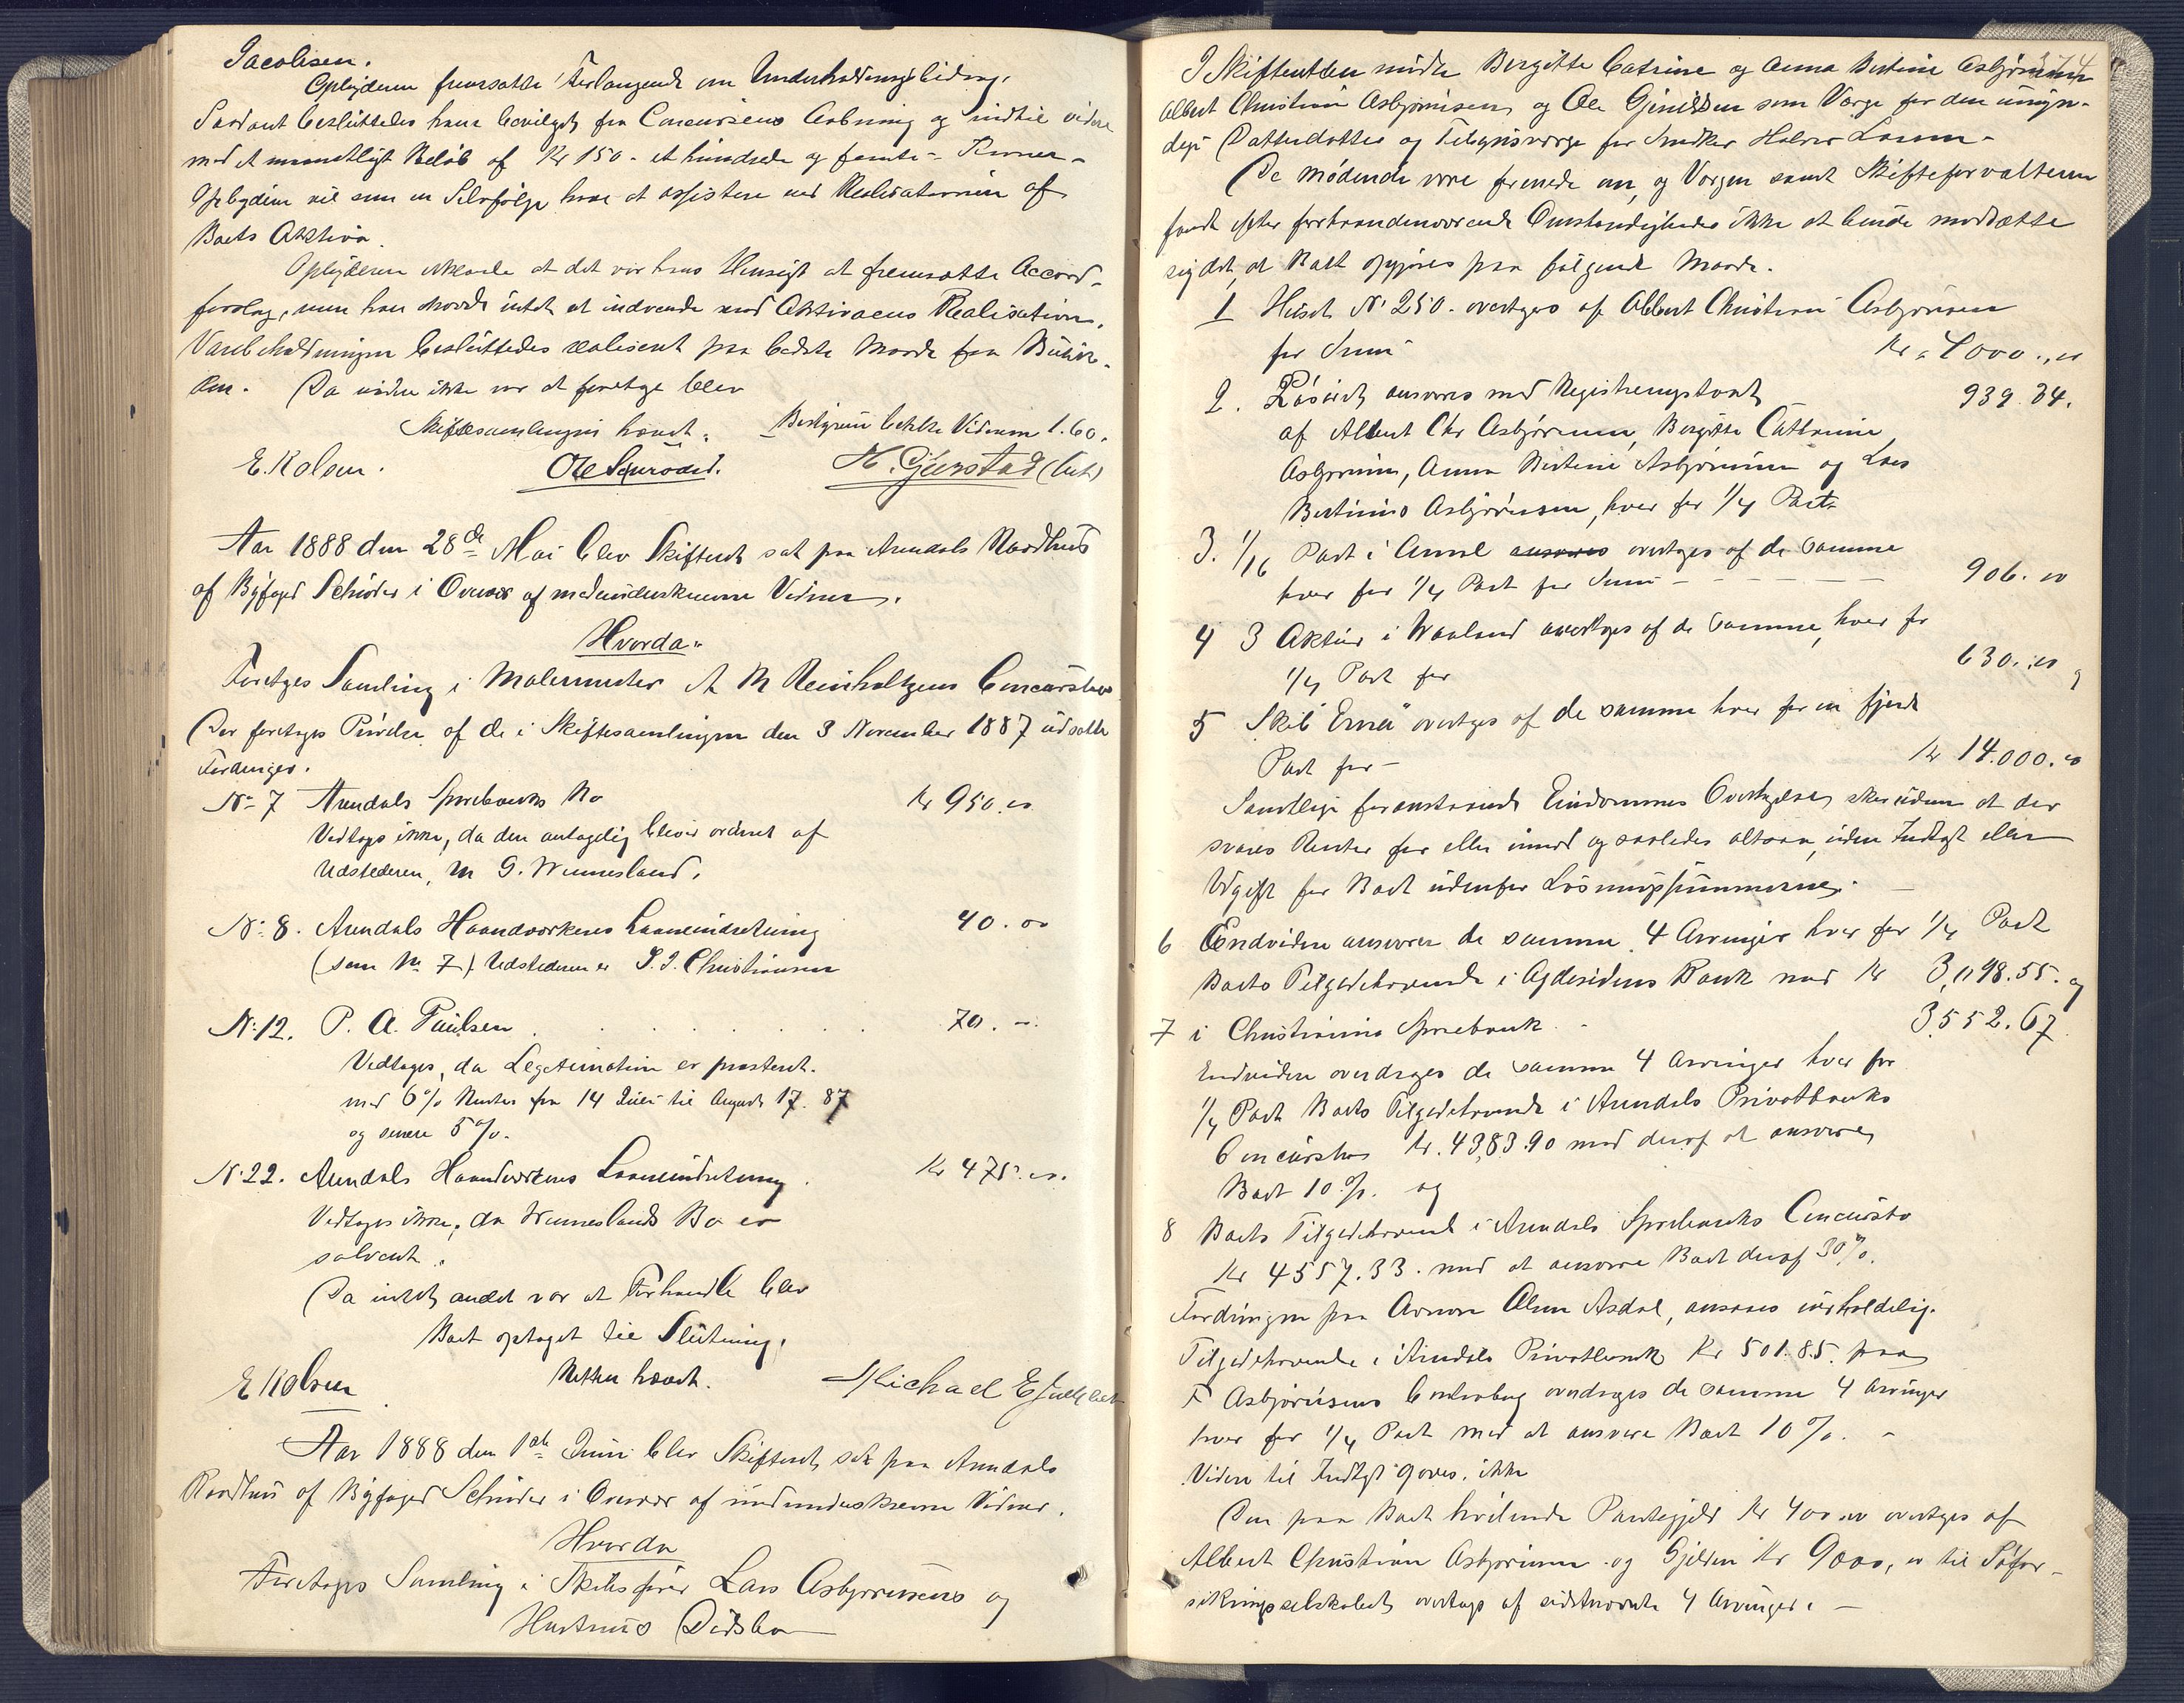 Jacobsen.
Opbyderen fremsatte Forlangende om Underholdningsbidrag.
Saadant besluttedes ham bevilget fra Concursens Aabning og indtil videre
med et maanedligt Beløb af Kr 150 - et hundrede og femti - Kroner -
Opbyderen vil som en Selvfølge have at assistere ved Realisationen af
Boets Aktiva.
Opbyderen erklærede at det var hans Hensigt at fremsætte Accord-
forslag, men han havde intet at indvende mod Aktivaens Realisation.
Varebeholdningen besluttedes realiseret paa bedste Maade fra Butik-
ken. Da videre ikke var at foretage blev
Skiftesamlingen hævet. Bestyreren betalte Vidnerne 1.60.
E. Kolsen. H. Gjerstad (const)
Aar 1888 den 28de Mai blev Skifteret sat paa Arendals Raadhus
af Byfoged Schrøder i Overvær af medunderskrevne Vidner.
Hvorda
Foretages Samling i Malermester A M Reinholtzens Concursbo
Der foretages Prøvelse af de i Skiftesamlingen den 3 November 1887 udsatte
Fordringer.
No 7 Arendals Sparebanks Bo Kr 950.00
Vedtages ikke, da den antagelig bliver ordnet af
Udstederen, M G. Wennesland.
No 8. Arendals Haandværkeres Laaneindretning 40.00
(som No 7) Udstederen er J. J. Christiansen
No 12. P. A. Paulsen . . . . . 70. -
Vedtages, da Legetimation er præsteret.
med 6% Renter fra 14 Juli til August 17. 87
og senere 5%.
No 22. Arendals Haandværkeres Laaneindretning . Kr 475.00.
Vedtages ikke, da Wenneslands Bo er
solvent.
Da intet andet var at Forhandle blev
Boet optaget til Slutning.
Retten hævet.
E Kolsen Michael
Aar 1888 den 1ste Juni blev Skifteret sat paa Arendals
Raadhus af Byfoged Schrøder i Overvær af medunderskrevne Vidner.
Hvorda
Foretages Samling i Skibsfører Lars Asbjørnsens og
Hustrues Dødsbo
I Skifteretten mødte Birgitte Catrine og Anna Bertine Asbjørnsen
Albert Christian Asbjørnsen, og Ole som Værge for den umyn-
dige Datterdatter og Tilsynsværge for Snedker Halvor Larsen -
De Mødende vare forenede om, og Værgen samt Skifteforvalteren
fandt efter forhaandenværende Omstændigheder ikke at burde modsætte
sig det, at Boet opgjøres paa følgende Maade.
1 Huset No 250. overtages af Albert Christian Asbjørnsen
for Sum Kr. 4000.,00
2. Løsøret ansvares med Registreringstaxt 939.34.
af Albert Chr Asbjørnsen, Birgitte Cathrine
Asbjørnsen, Anna Bertine Asbjørnsen og Lars
Bertinius Asbjørnsen, hver for 1/4 Part
3. 1/16 Part i ansvares overtages af de samme
hver for 1/4 Part for Sum - - - - - 906.00
4 3 Aktier i overtages af de samme, hver for
1/4 Part for 630.00
5 Skib "Erna" overtages af de samme hver for en fjerde
Part for - Kr 14.000.00
Samtlige foranstaaende Eiendommes Overtagelse, sker uden at der
svares Renter for eller imod og saaledes altsaa, uden Indtægt eller
Udgift for Boet udenfor Løsningssummerne.
6 Endvidere ansvarer de samme 4 Arvinger hver for 1/4 Part
Boets Tilgodehavende i Agdesidens Bank med Kr 3,198.55. og
7 i Christiania Sparebank - 3552.67
Endvidere overdrages de samme 4 Arvinger hver for
1/4 Part Boets Tilgodehavende i Arendals Privatbanks
Concursbo Kr. 4383.90 med deraf at ansvare
Boet 10%. og
8 Boets Tilgodehavende i Arendals Sparebanks Concursbo
Kr 4557.33. med at ansvare Boet deraf 30%.
Fordringen paa Olsen Asdal, ansaaes uerholdelig.
Tilgodehavende i Arendals Privatbank Kr 501.85. paa
F Asbjørnsens Contrabog overdrages de samme 4 Arvinger
hver for 1/4 Part med at ansvare Boet 10%. -
Videre til Indtægt haves ikke
Den paa Boet hvilende Pantegjæld Kr 400.00 overtages af
Albert Christian Asbjørnsen og Gjælden Kr 9000,00 til Søfor-
sikringsselskabet, overtages af sidstnævnte 4 Arvinger. -